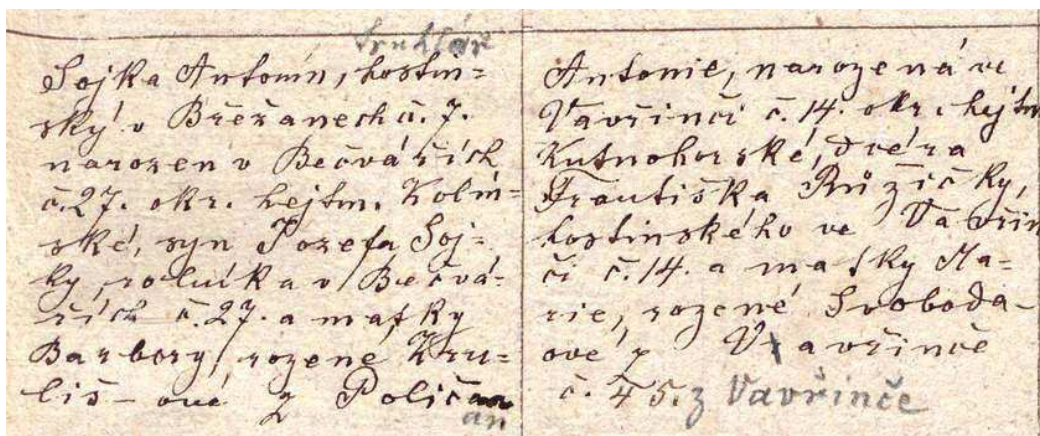 truhlář
Sojka Antonín, hostin=
ský v Břežanech č. 7.
narozen v Bečvářích
č.27. okr. hejtm. Kolín=
ské, syn Jozefa Soj=
ky, rolníka v Bečvá=
řích č.27. a matky
Barbory, rozené Kru=
liš-ové z Poličan
an
Antonie, narozená ve
Vavřinči č.14. okr. hejtm
Kutnohorské, dcéra
Františka Růžičky,
hostinského ve Vavřin
či č.14. a matky Ma=
rie, rozené Svoboda-
ové z Vavřinče
č. 45. z Vavřinče